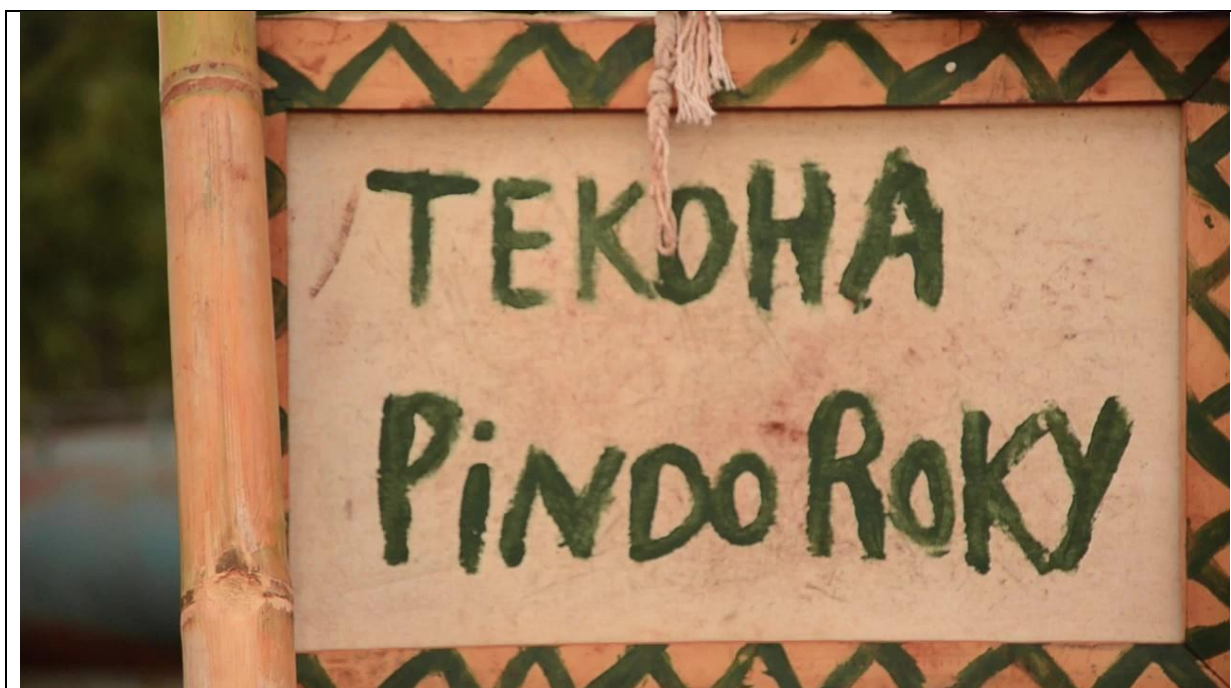 TEKOHA
PiNDO ROKY